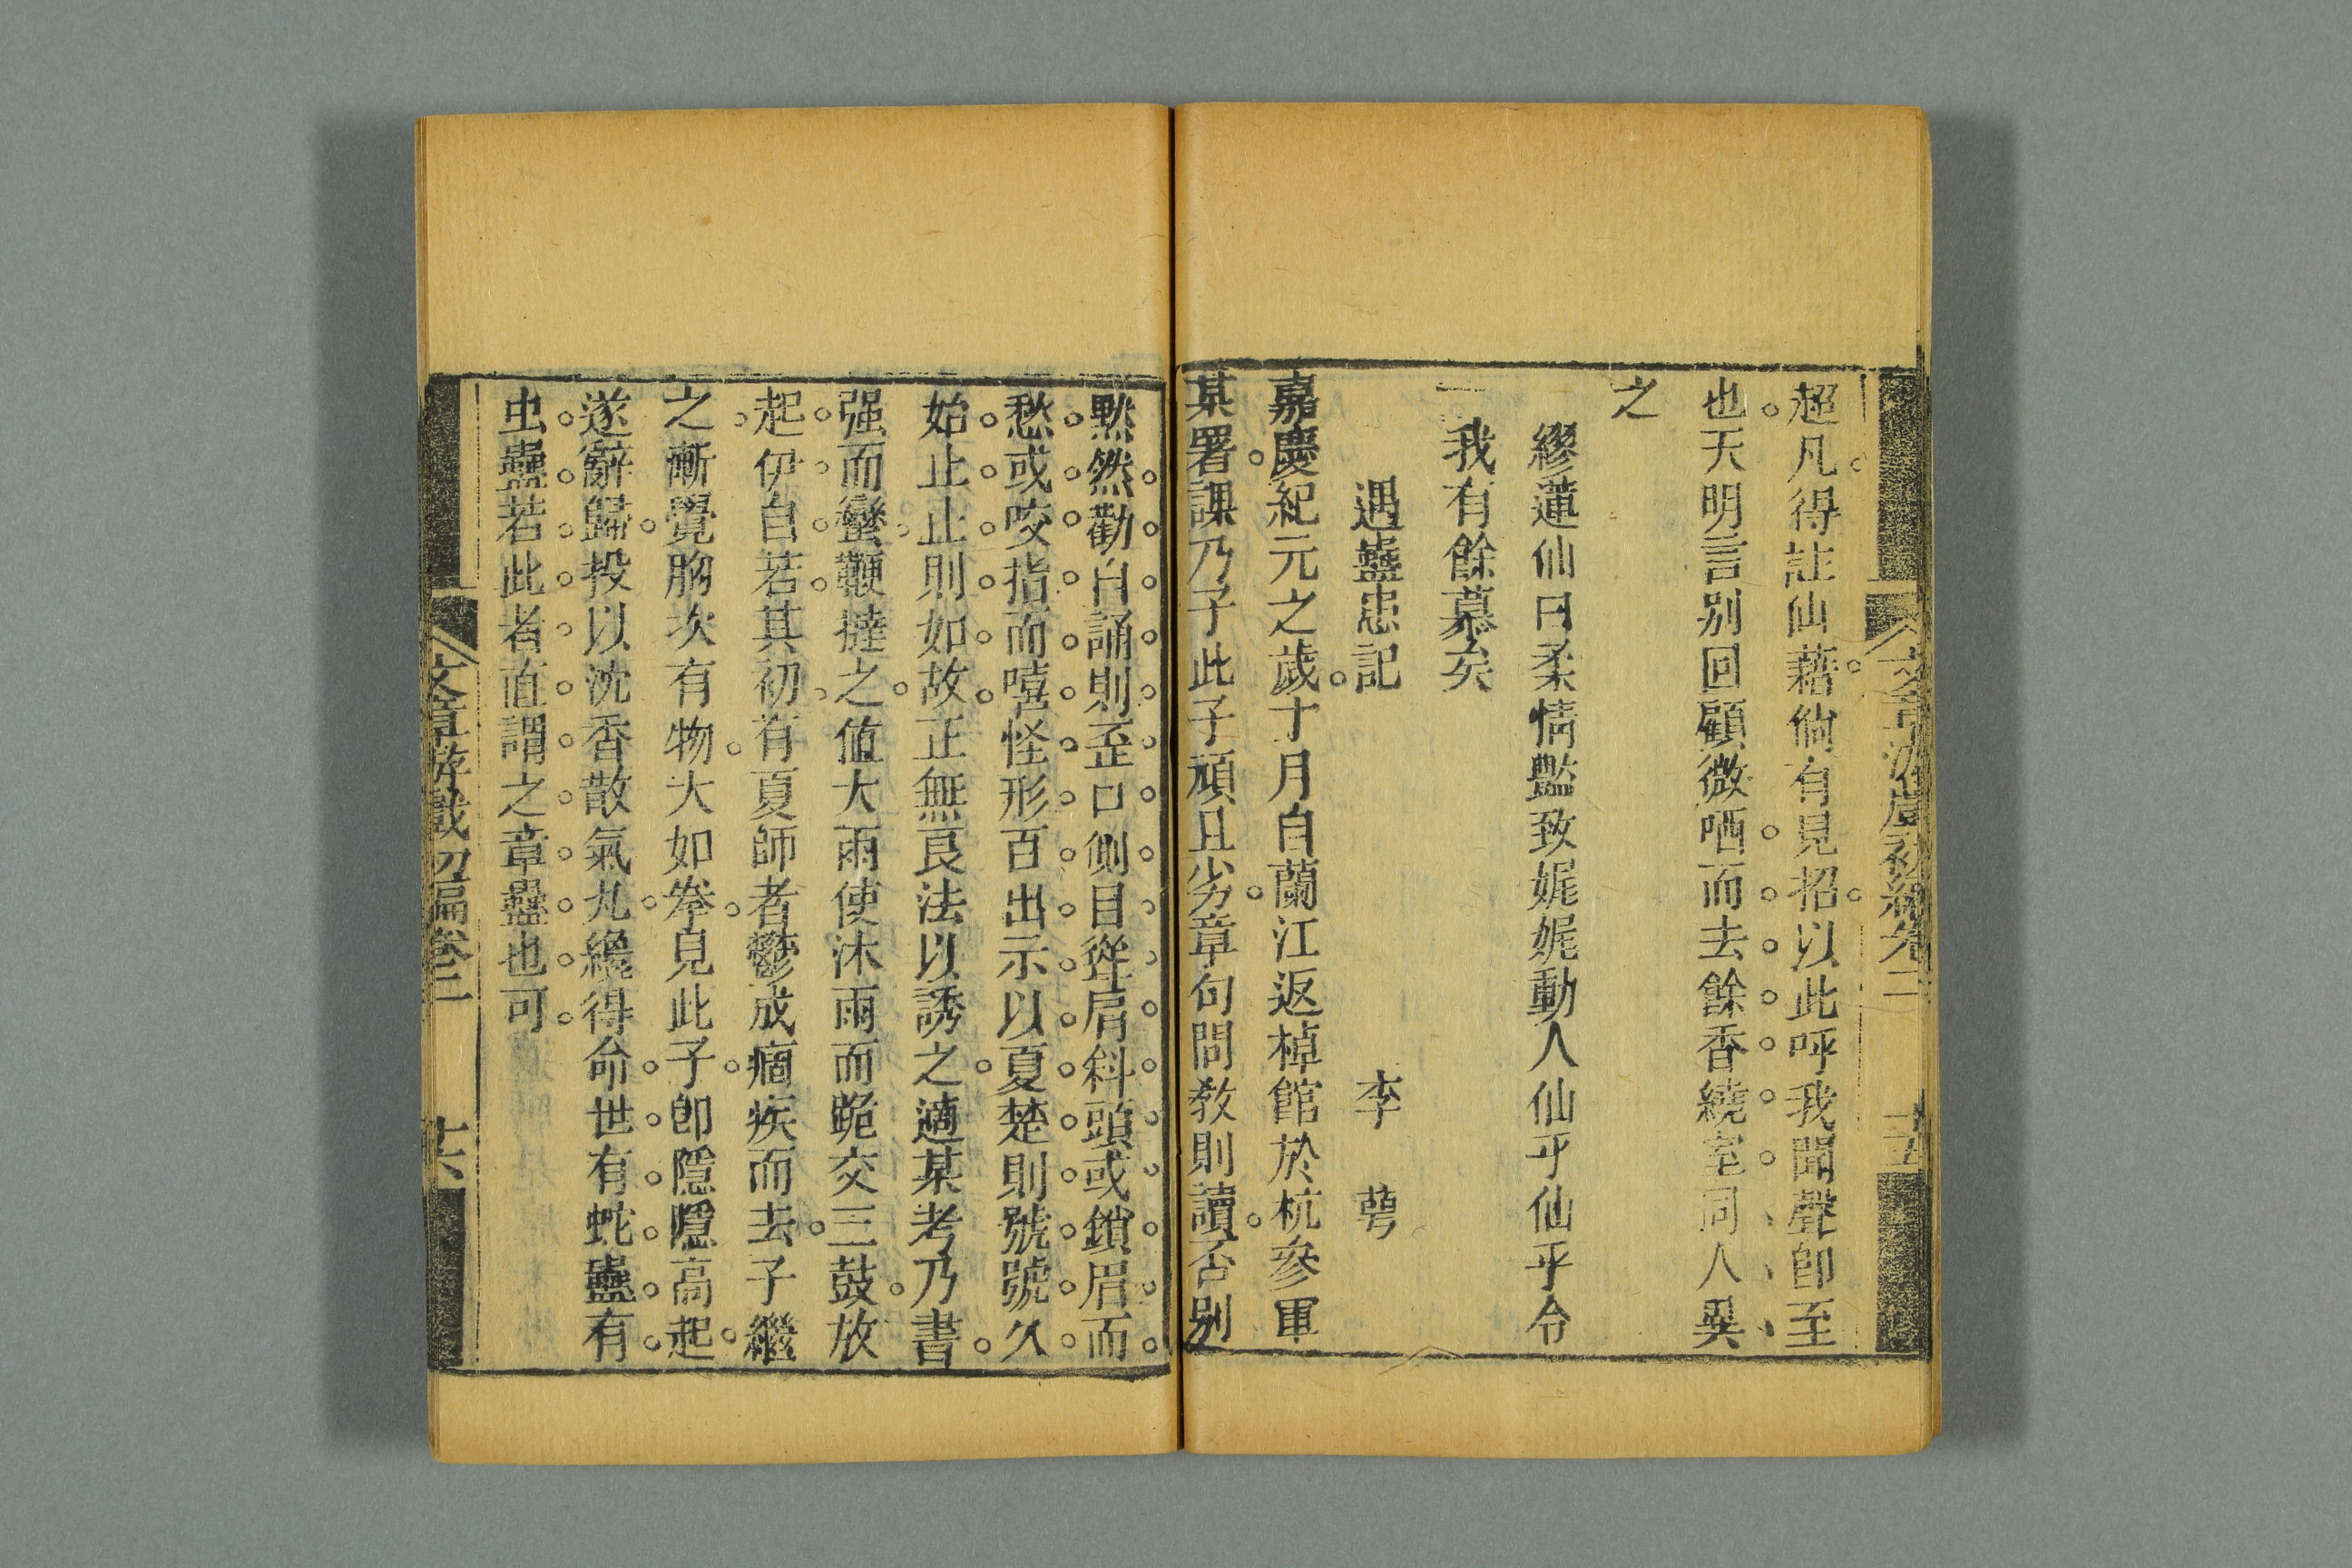 超凡得註仙藉倘有見招以此呼我聞聲卽至
也天明言别回顧微哂而去餘香繞室同人異
之
繆蓮仙曰柔情豔致娓娓動人仙乎仙乎令
我有餘慕矣
遇蠱患記 李蕚
嘉慶紀元之歲十月自蘭江返棹館於杭參軍
某署課乃子此子頑且劣章句問教則讀否别
黙然勸自誦則歪口側目聳肩斜頭或鎖眉而
愁或咬指而嘻怪形百出示以夏楚則號號久
始止止則如故正無良法以誘之適某考乃書
强而蠻鞭撻之値大雨使沐雨而跪交三鼓放
起伊自若其初有夏師者鬱成痼疾而去子繼
之漸覺胸次有物大如拳見此子卽隱隱高起
遂辭歸投以沈香散氣丸纔得命世有蛇蠱有
虫蠱若此者直謂之章蠱也可
文章游戲初編卷二 十五
文章游戲初編卷二 十六